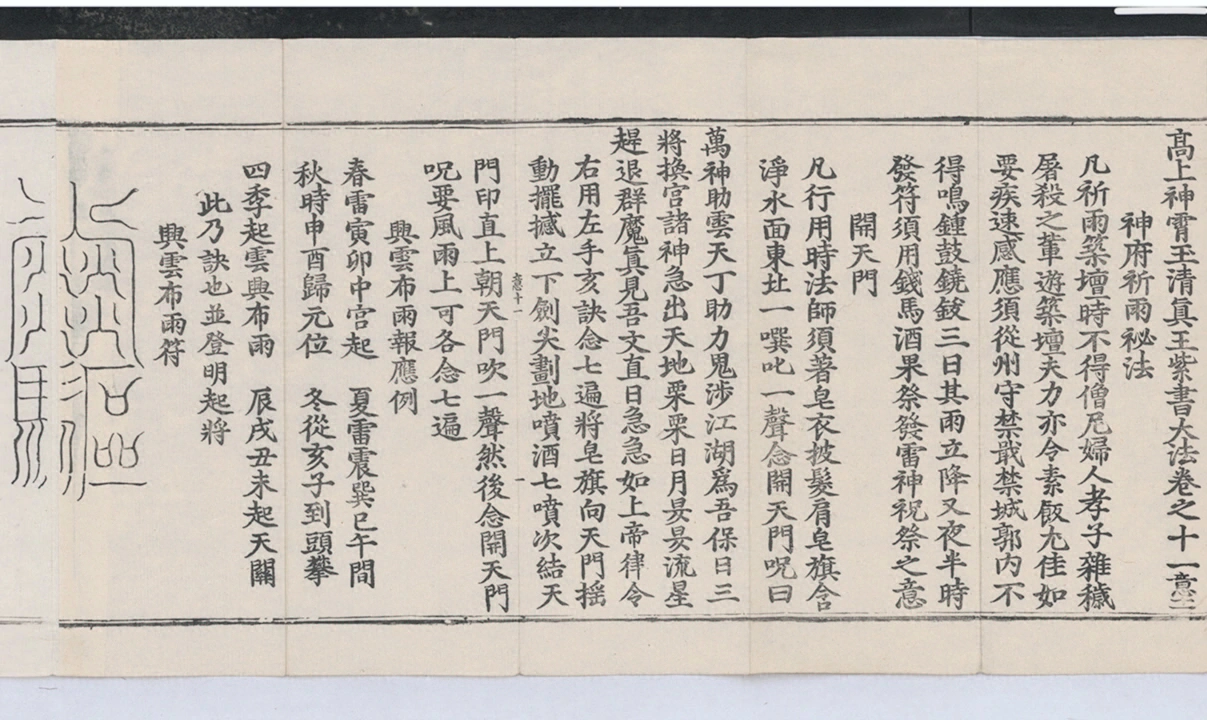 高上神霄玉清真王紫書大法卷之十一 意三
神府祈雨祕法
凡祈雨築壇時不得僧尼婦人孝子雜穢
屠殺之軰遊築壇夫力亦令素飯尤佳如
要疾速感應須從州守禁戢禁城郭内不
得鳴鍾鼓鐃鈸三日其雨立降又夜半時
發符須用錢馬酒果祭發雷神祝祭之意
開天門
凡行用時法師須著皂衣披髮肩皂旗含
淨水面東北一噀叱一聲念開天門呪曰
萬神助雲天丁助力鬼涉江湖爲吾保日三
將換宫諸神急出天地栗栗日月晏晏流星
趕退群魔真見吾文直日急急如上帝律令
右用左手亥訣念七遍將皂旗向天門揺
動擺撼立下劍尖劃地噴酒七噴次結天
意十一
門印直上朝天門吹一聲然後念開天門
呪要風雨上可各念七遍
興雲布雨報應例
春雷寅卯中宫起　夏雷震巽巳午間
秋時申酉歸元位　冬從亥子到頭攀
四季起雲興布雨　辰戌丑未起天關
此乃訣也並登明起將
興雲布雨符